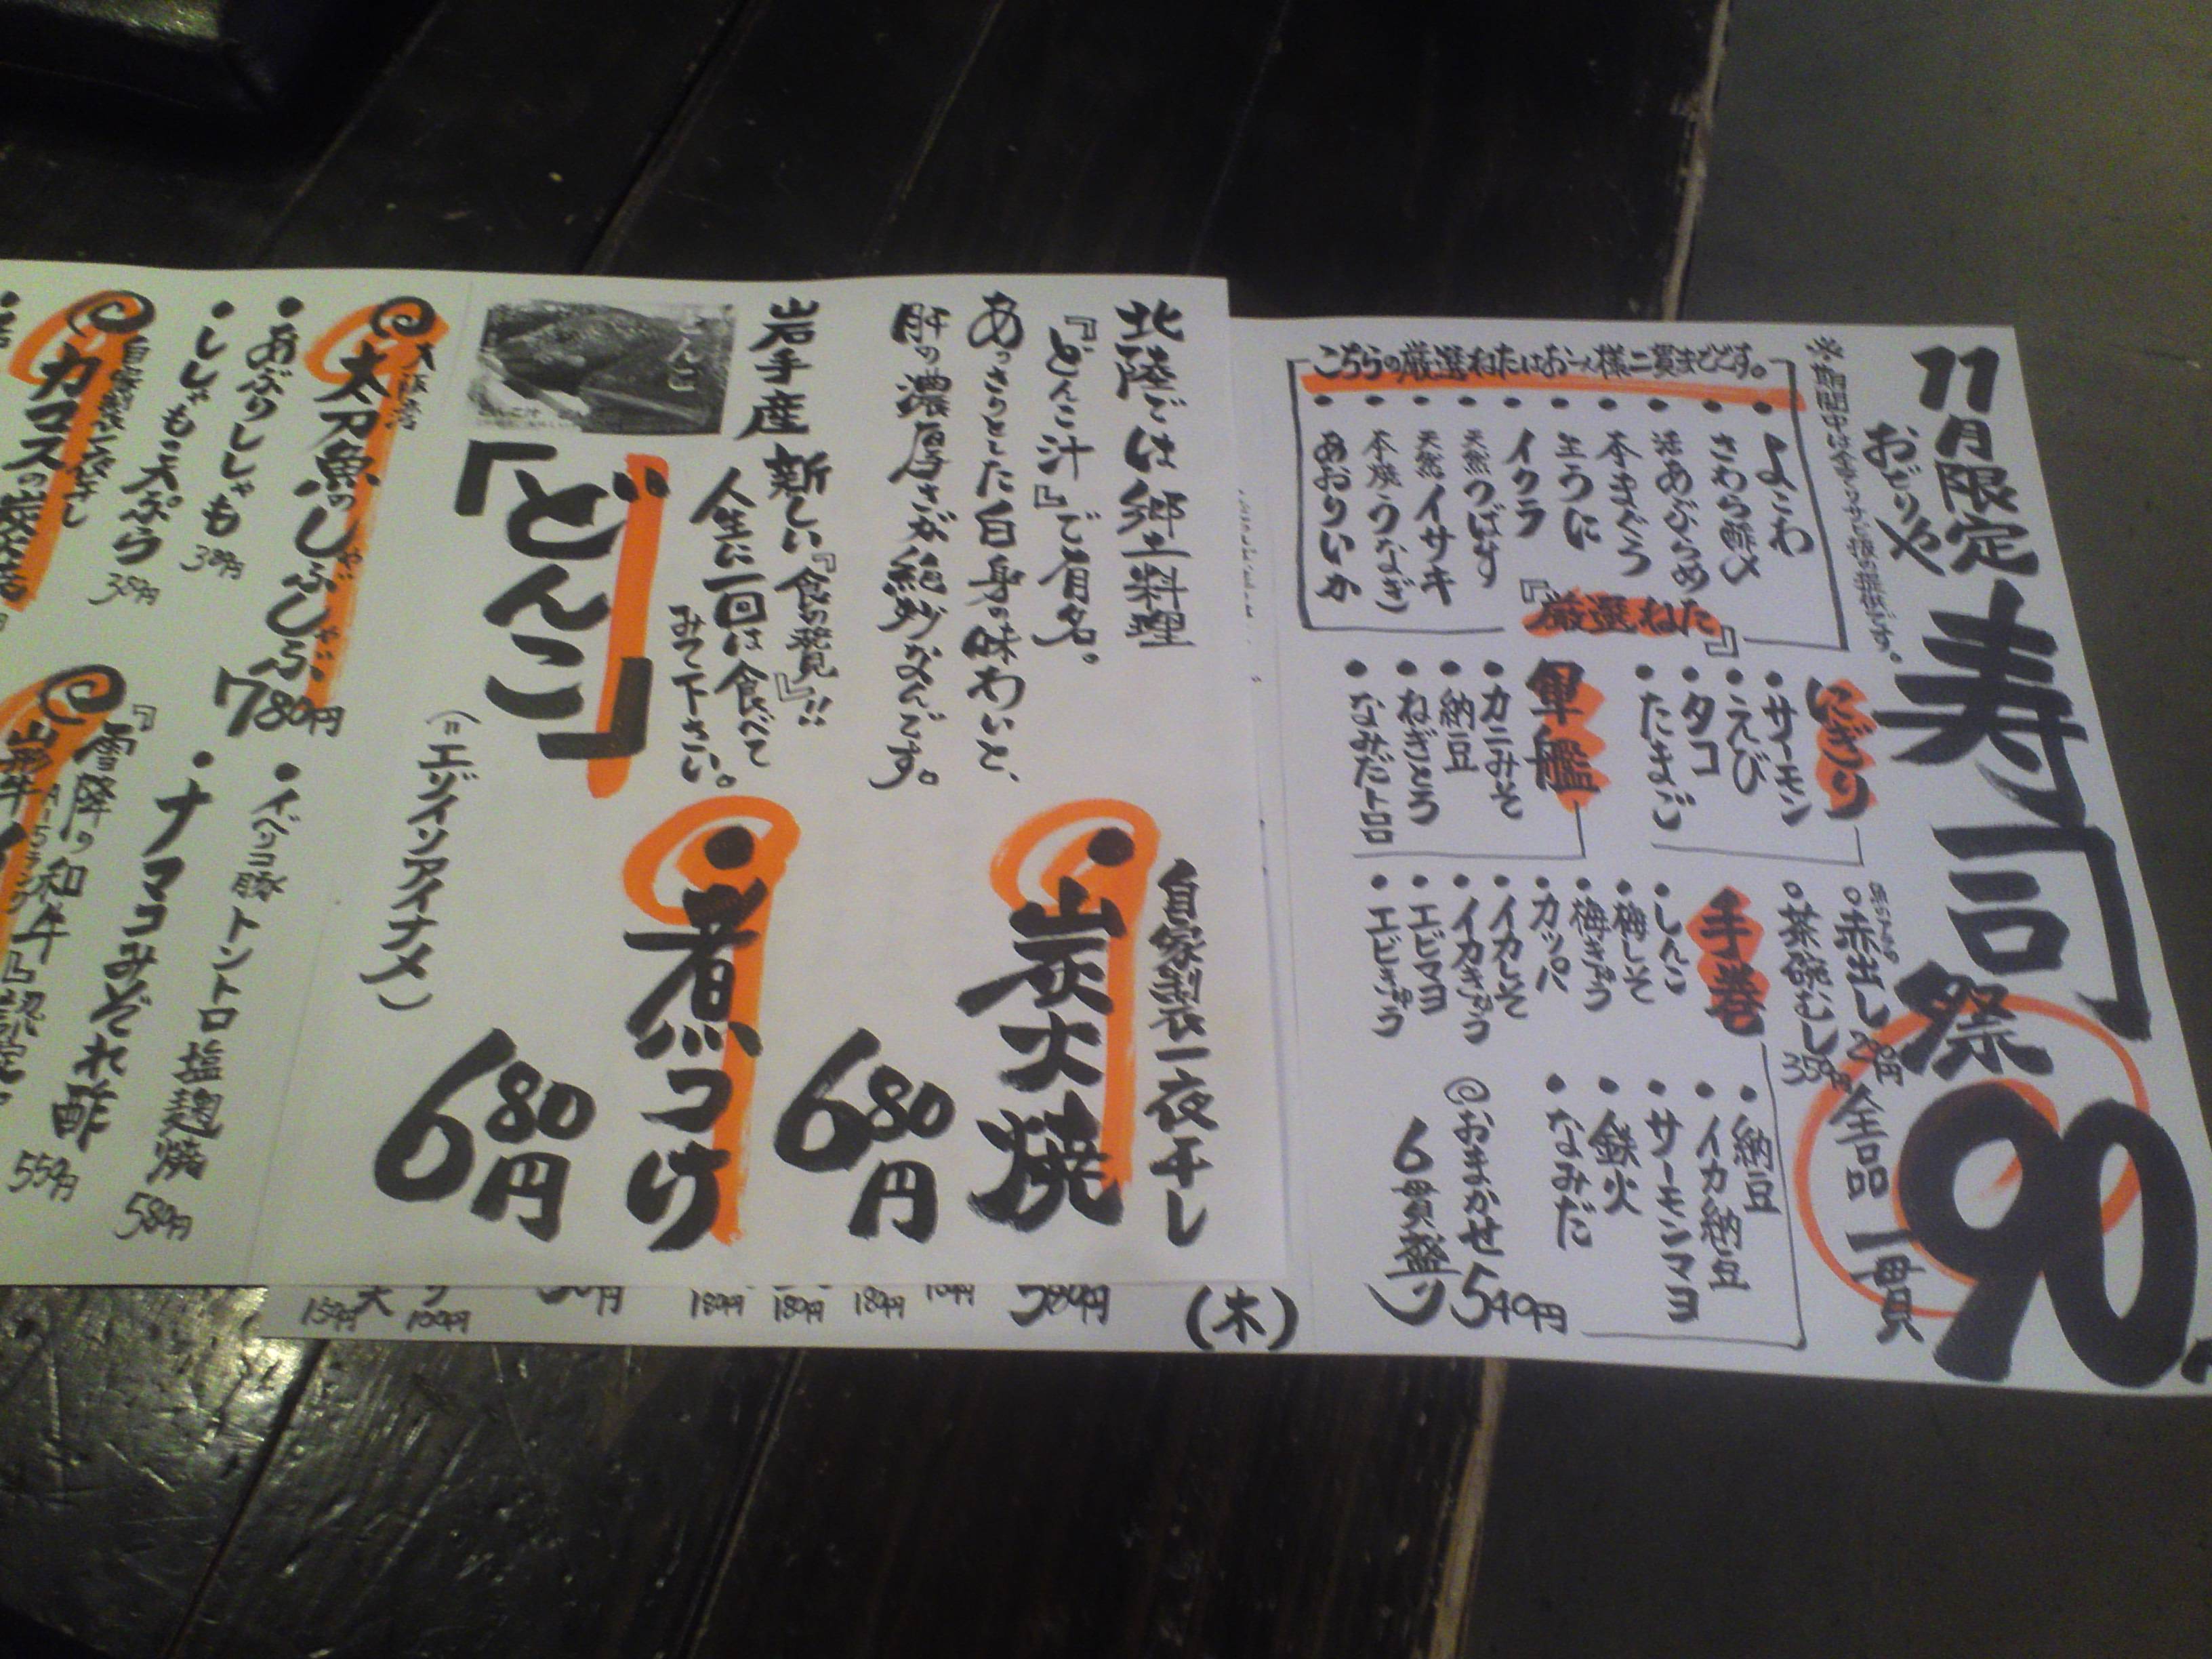 11月限定
寿司祭
90
全品一貫
こちらの厳選ねたはお一人様二貫までです。
・よこわ
・さわら酢〆
・活あぶらめ
・本まぐろ
・生うに
・イクラ
・天然つばす
・天然イサキ
・本焼うなぎ
・あおりいか
『厳選ねた』
にぎり
・サーモン
・えび
・タコ
・たまご
軍艦
・カニみそ
・納豆
・ねぎとろ
・なみだ
。赤出し 290円
。茶碗むし 350円
手巻
・しんこ
・梅しそ
・梅きゅう
・カッパ
・イカしそ
・イカきゅう
・エビマヨ
・エビきゅう
・納豆
・イカ納豆
・サーモンマヨ
・鉄火
・なみだ
おまかせ
6貫盛り 540円
(木)
北陸では郷土料理
『どんこ汁』で有名。
あっさりとした白身の味わいと、
肝の濃厚さが絶妙なんです。
自家製一夜干し
・炭火焼
680円
岩手産
新しい『食の発見』!!
人生に一回は食べて
みて下さい。
どんこ
「どんこ」
・煮つけ
680円
(=エゾイソアイナメ)
大阪湾
太刀魚のしゃぶしゃぶ
780円
・あぶりししゃも 380円
・ししゃも天ぷら 380円
・イベリコ豚トントロ塩麹焼 580円
・ナマコみぞれ酢 550円
カマスの
『雪降り和牛』認定。
山形牛
580円
180円
180円
180円